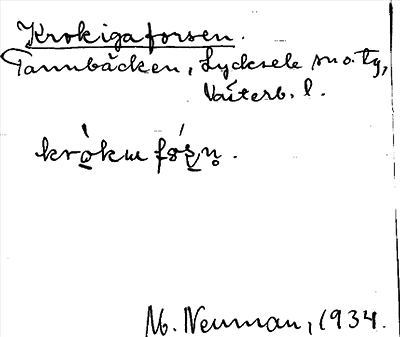 Krokigaforsen.
Tannbäcken, Lycksele sn o. tg,
Västerb. l.
krò̠kɯ fó̠ʂn̥.
M. Neuman, 1934.